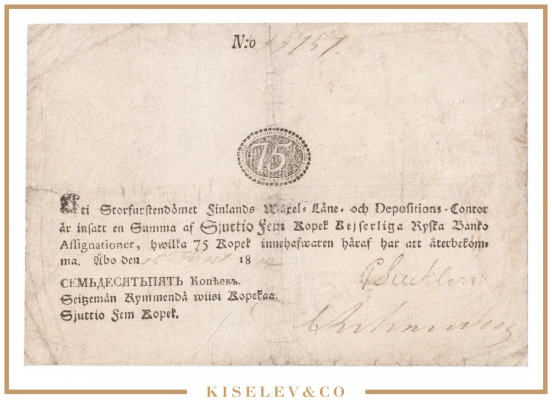 N:o 15757.
75
At i Storfurstendömet Finlands Wäxel- Låne- och Depositions-Contor
är insatt en Summa af Sjuttio Fem Kopek Kejserliga Ryska Banko
Assignationer, hwilka 75 Kopek innehafwaren häraf har att återbekom-
ma. Åbo den 18
СЕМЬДЕСЯТЬПЯТЬ Копѣекъ.
Seitzemän Kymmendä wiisi Kopekaa.
Sjuttio Fem Kopek.
KISELEV&CO